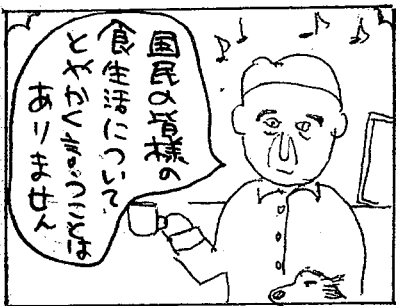 国民の皆様の
食生活について
とやかく言うことは
ありません